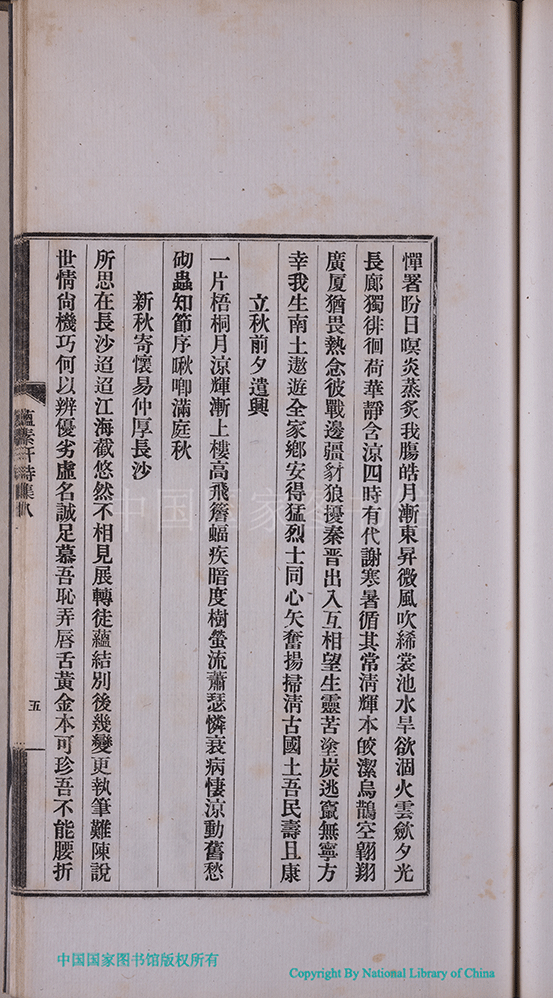 憚署盼日暝炎蒸炙我膓皓月漸東昇微風吹絺裳池水旱欲涸火雲歛夕光
長廊獨徘徊荷華靜含涼四時有代謝寒暑循其常淸輝本皎潔烏鵲空翺翔
廣厦猶畏熱念彼戰邊疆豺狼擾秦晋出入互相望生靈苦塗炭逃竄無寧方
幸我生南土遨遊全家鄕安得猛烈士同心矢奮揚掃淸古國土吾民壽且康
立秋前夕遣興
一片梧桐月涼輝漸上樓高飛簷蝠疾暗度樹螢流蕭瑟憐衰病悽涼動舊愁
砌蟲知節序啾喞滿庭秋
新秋寄懷易仲厚長沙
所思在長沙迢迢江海截悠然不相見展轉徒蘊結別後幾變更執筆難陳說
世情尙機巧何以辨優劣虛名誠足慕吾恥弄唇舌黃金本可珍吾不能腰折
蘊素軒詩集八
五
中国国家图书馆
中国国家图书馆版权所有
Copyright By National Library of China